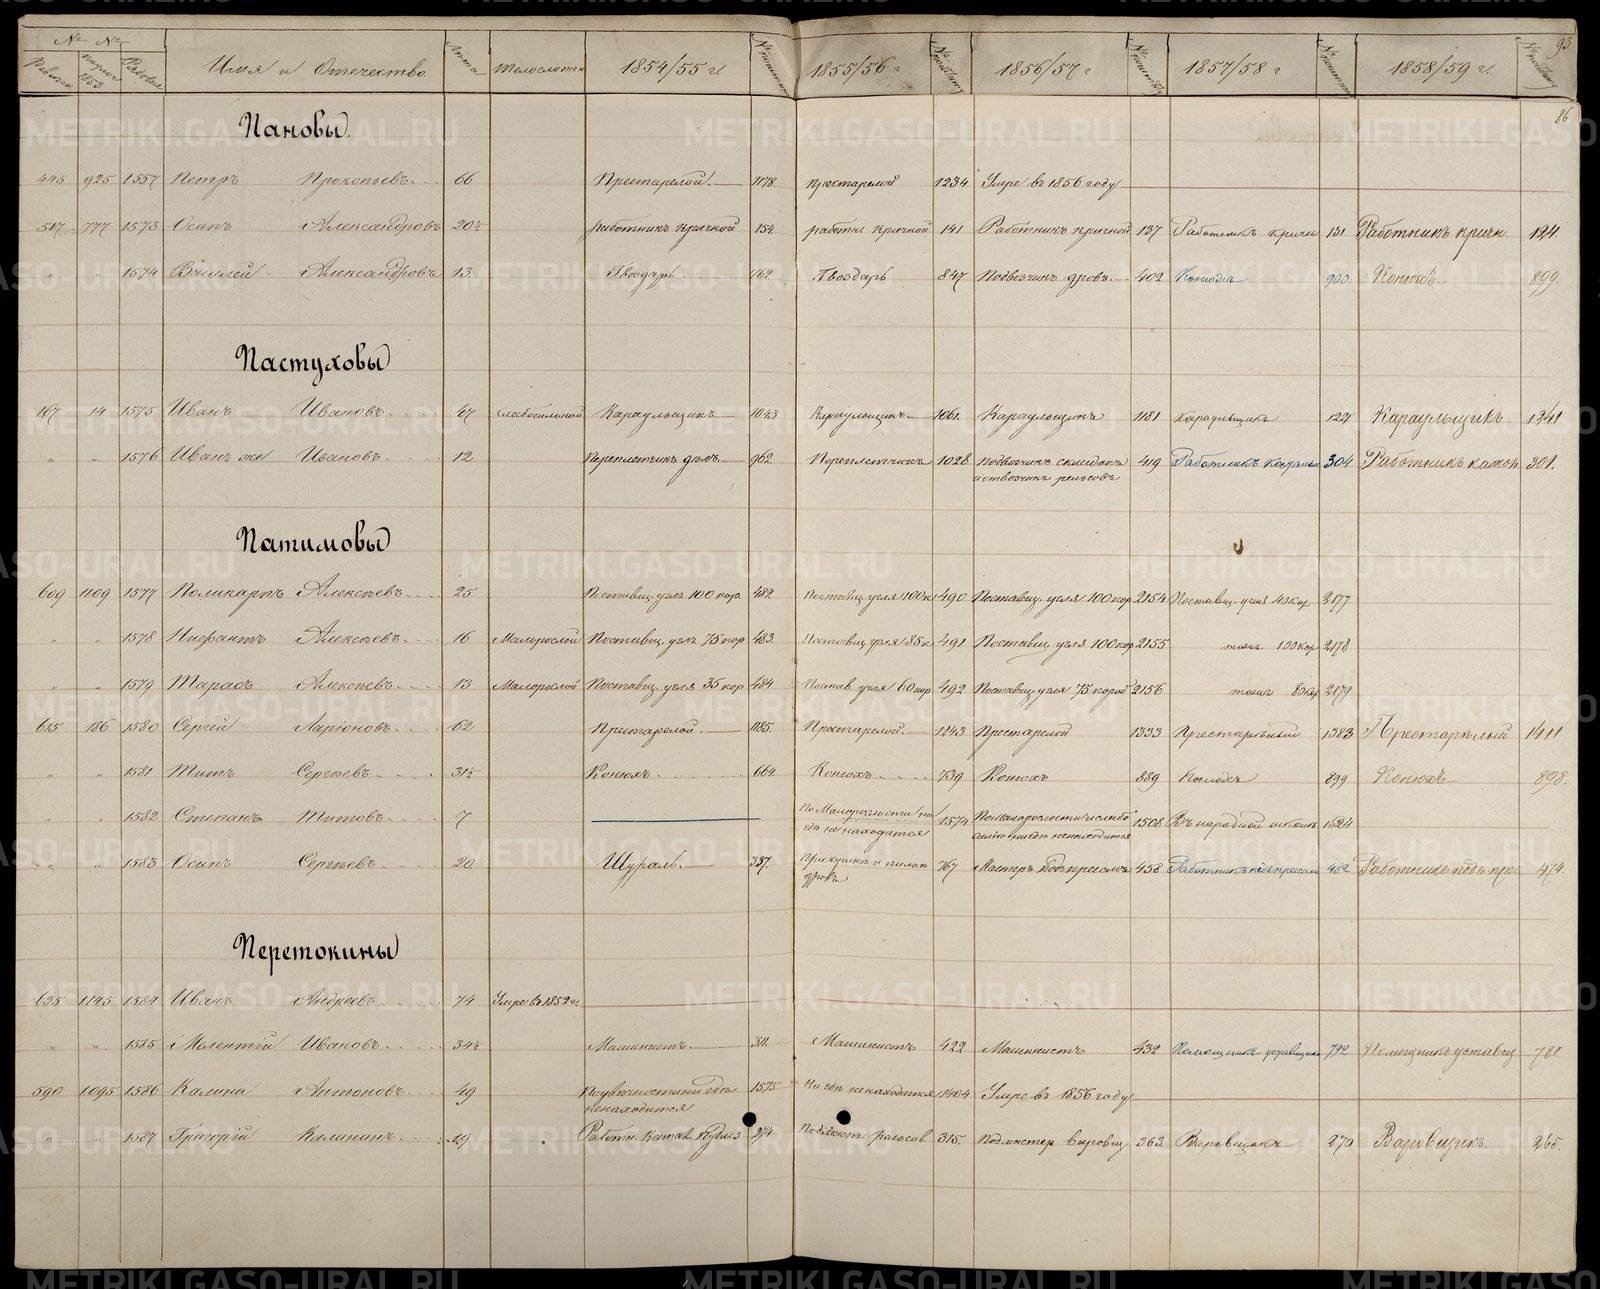 93
86
№ № Имя и Отечество Лета Телосложен 1854/55 г. 1855/56 г 1856/57 г 1857/58 г 1858/59 г.
Пановы.
445 925 1557 Петръ Прокопьевъ. 66 Престарелой. 1178. престарелой 1234 Умре въ 1856 году
517 777 1573 Осипъ Александровъ 20½ работникъ кричной 154. работн кричной 141 Работникъ кричной 137 Работникъ кричн 131 Работникъ кричн. 124.
" " 1574 Василей Александровъ 13. Гвоздарь 762. Гвоздарь 847 Подвозчикъ дровъ 402 900 Конюхъ 899.
Пастуховы
167 14 1575 Иванъ Ивановъ 47 слабосильной Караульщикъ 1043 Караульщикъ 1061. Караульщикъ 1181 караульщикъ 1241
Караульщикъ
" " 1576 Иванъ же Ивановъ 12 962. Переплетчикъ 1028 419 Работникъ 304 Работникъ 301.
Патимовы
609 1109 1577 Поликарпъ Алексѣевъ 25 Поставщ. угля 100 кор. 482 Поставщ угля 100 к 490 Поставщ. угля 100 кор 2154 Поставщ. угля 40 кор 2177
" " 1578 Алексѣевъ 16 Малорослой Поставщ. угля 75 кор 483. Поставщ угля 85 к 491 Поставщ угля 100 кор 2155 тоже 100 кор 2178
" " 1579 Тарасъ Алексѣевъ 13 Малорослой Поставщ. угля 35 кор 484 Постав. угля 60 кор 492 Поставщ. угля 75 короб 2156 тоже 80 кор 2179
615 186 1580 Сергѣй Ларіоновъ 62 Престарелой. 1185. Престарелой. 1243 Престарелой 1333 Престарѣлый 1383 Престарѣлый 1411
" " 1581 Титъ Сергѣевъ 31½ Конюхъ 664. Конюхъ 739 Конюхъ 889 899 Конюхъ 898.
" " 1582 Степанъ Титовъ 7 По Малорослости ни
гдѣ не находится 1574 1508 Въ народной школѣ 1624
" " 1583 Осипъ Сергѣевъ 20. Шураль. 337. 767 Мастеръ подъ прессомъ 458 Работникъ подъ прессом 482 Работникъ подъ прес 474.
Перетокины
635 1145 1584 Иванъ Андреевъ 74 Умре въ 1852 г.
" " 1585 Мелентій Ивановъ 34½ Машинистъ 311. Машинистъ 422 Машинистъ 432 Помощникъ уставщика 792 Помощникъ уставщ 781.
590 1095 1586 Калина Антоновъ 49 По увѣчности ни гдѣ
ненаходится 1575 Ни гдѣ ненаходится 1404 Умре въ 1856 году
" " 1587 Григорій Калининъ 19 274 рельсов 315. Подмастер Варовщ 362 Варовщикъ 270 Варовщикъ. 265.
METRIKI.GASO-URAL.RU